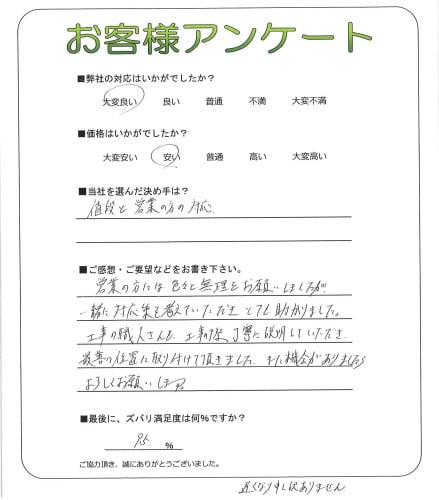 お客様アンケート
■弊社の対応はいかがでしたか?
大変良い 良い 普通 不満 大変不満
■価格はいかがでしたか?
大変安い 安い 普通 高い 大変高い
■当社を選んだ決め手は?
値段と営業の方の対応
■ご感想・ご要望などをお書き下さい。
営業の方には色々と無理をお願いしましたが
一緒に対応策を考えていただきとても助かりました。
工事の職人さんも、工事の後、丁寧に説明していただき
最善の位置に取り付けて頂きました。また機会がありましたら
よろしくお願いします。
■最後に、ズバリ満足度は何%ですか?
95. %
ご協力頂き、誠にありがとうございました。
遅くなり申し訳ありません